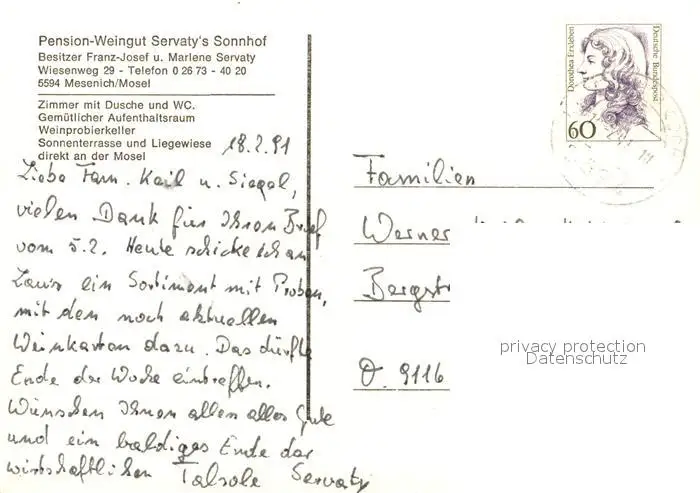 Pension-Weingut Servaty's Sonnhof
Besitzer Franz-Josef u. Marlene Servaty
Wiesenweg 29 - Telefon 0 26 73 - 40 20
5594 Mesenich/Mosel
Zimmer mit Dusche und WC.
Gemütlicher Aufenthaltsraum
Weinprobierkeller
Sonnenterrasse und Liegewiese
direkt an der Mosel
18.2.91
Liebe Fam. Keil u. Siegel,
vielen Dank für Ihren Brief
vom 5.2. Heute schicke ich an
Lauis ein Sortiment mit Proben,
mit den noch aktuellen
Weinkarten dazu. Das dürfte
Ende der Woche eintreffen.
Wünschen Ihnen allen alles Gute
und ein baldiges Ende der
wirtschaftlichen Talsole Servaty
Dorothea Erxleben
Deutsche Bundespost
60
Familien
Werner
Bergstr
O. 9116
privacy protection
Datenschutz